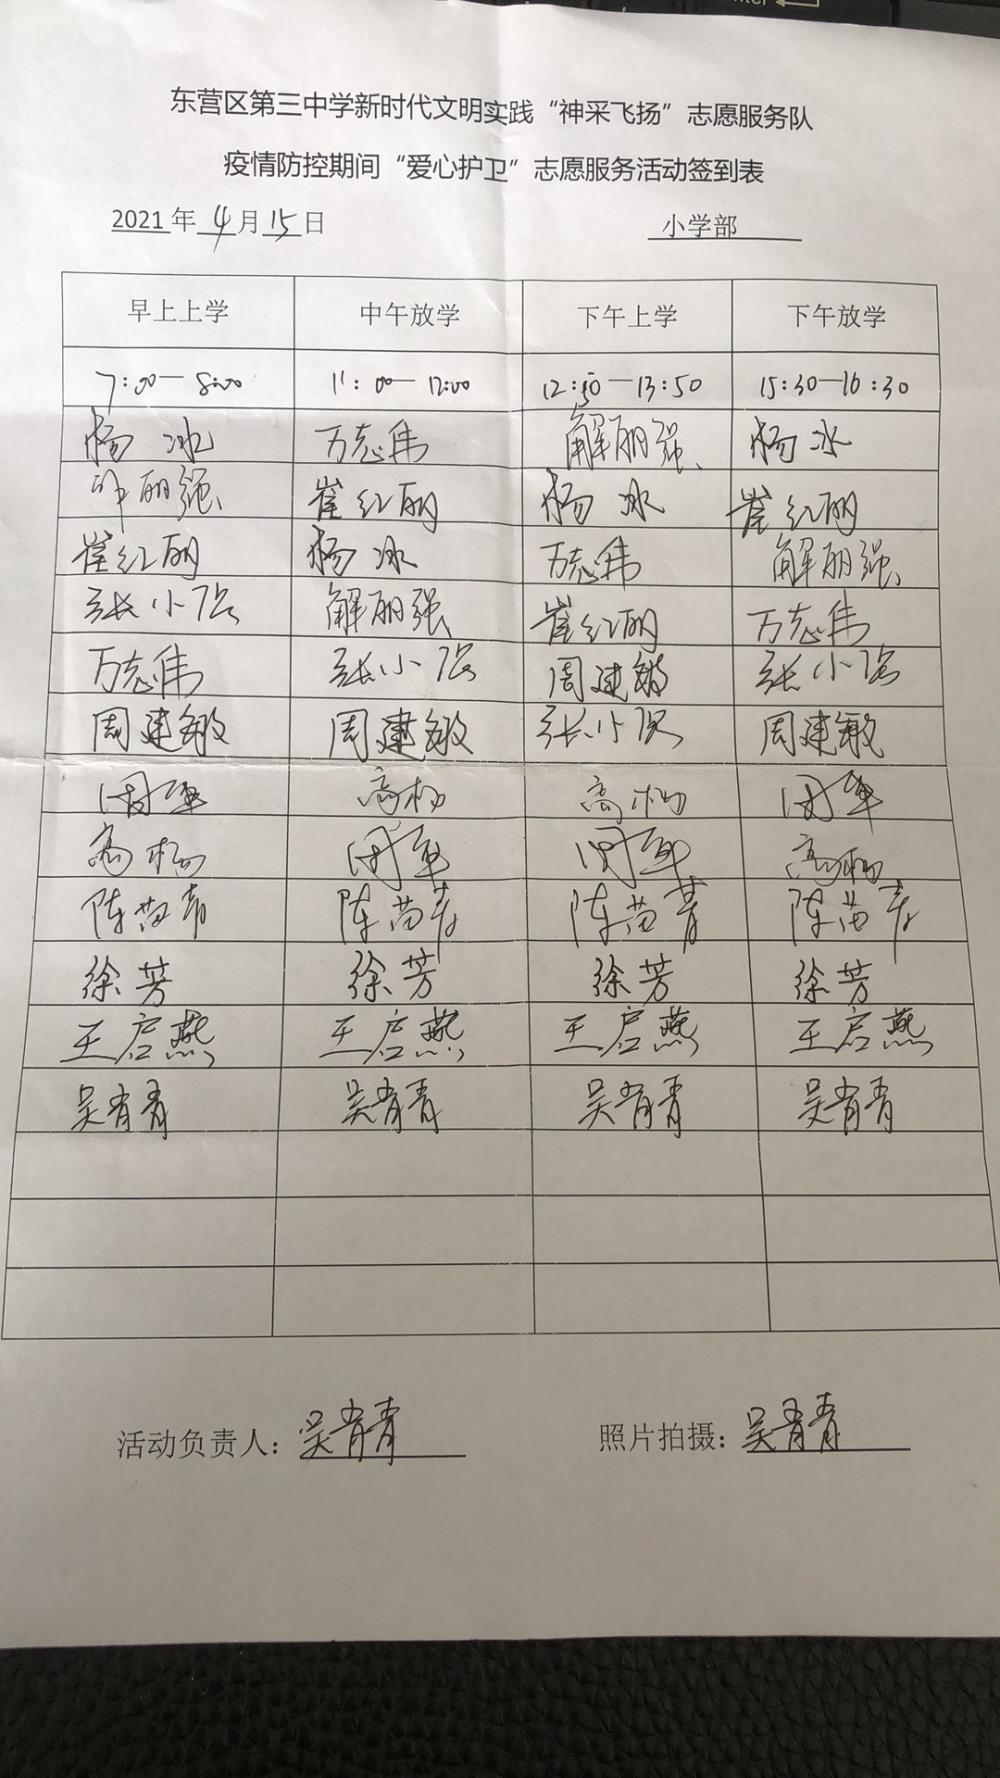 东营区第三中学新时代文明实践“神采飞扬”志愿服务队
疫情防控期间“爱心护卫”志愿服务活动签到表
2021年4月15日 小学部
早上上学 中午放学 下午上学 下午放学
7:00—8:00 11:00—12:00 12:50—13:50 15:30—16:30
杨冰 万志伟 解丽强 杨冰
解丽强 崔红丽 杨冰 崔红丽
崔红丽 杨冰 万志伟 解丽强
张小强 解丽强 崔红丽 万志伟
万志伟 张小强 周建敏 张小强
周建敏 周建敏 张小强 周建敏
高杨 高杨
高杨 高杨
陈苗青 陈苗青 陈苗青 陈苗青
徐芳 徐芳 徐芳 徐芳
王启燕 王启燕 王启燕 王启燕
吴青青 吴青青 吴青青 吴青青
活动负责人：吴青青 照片拍摄：吴青青